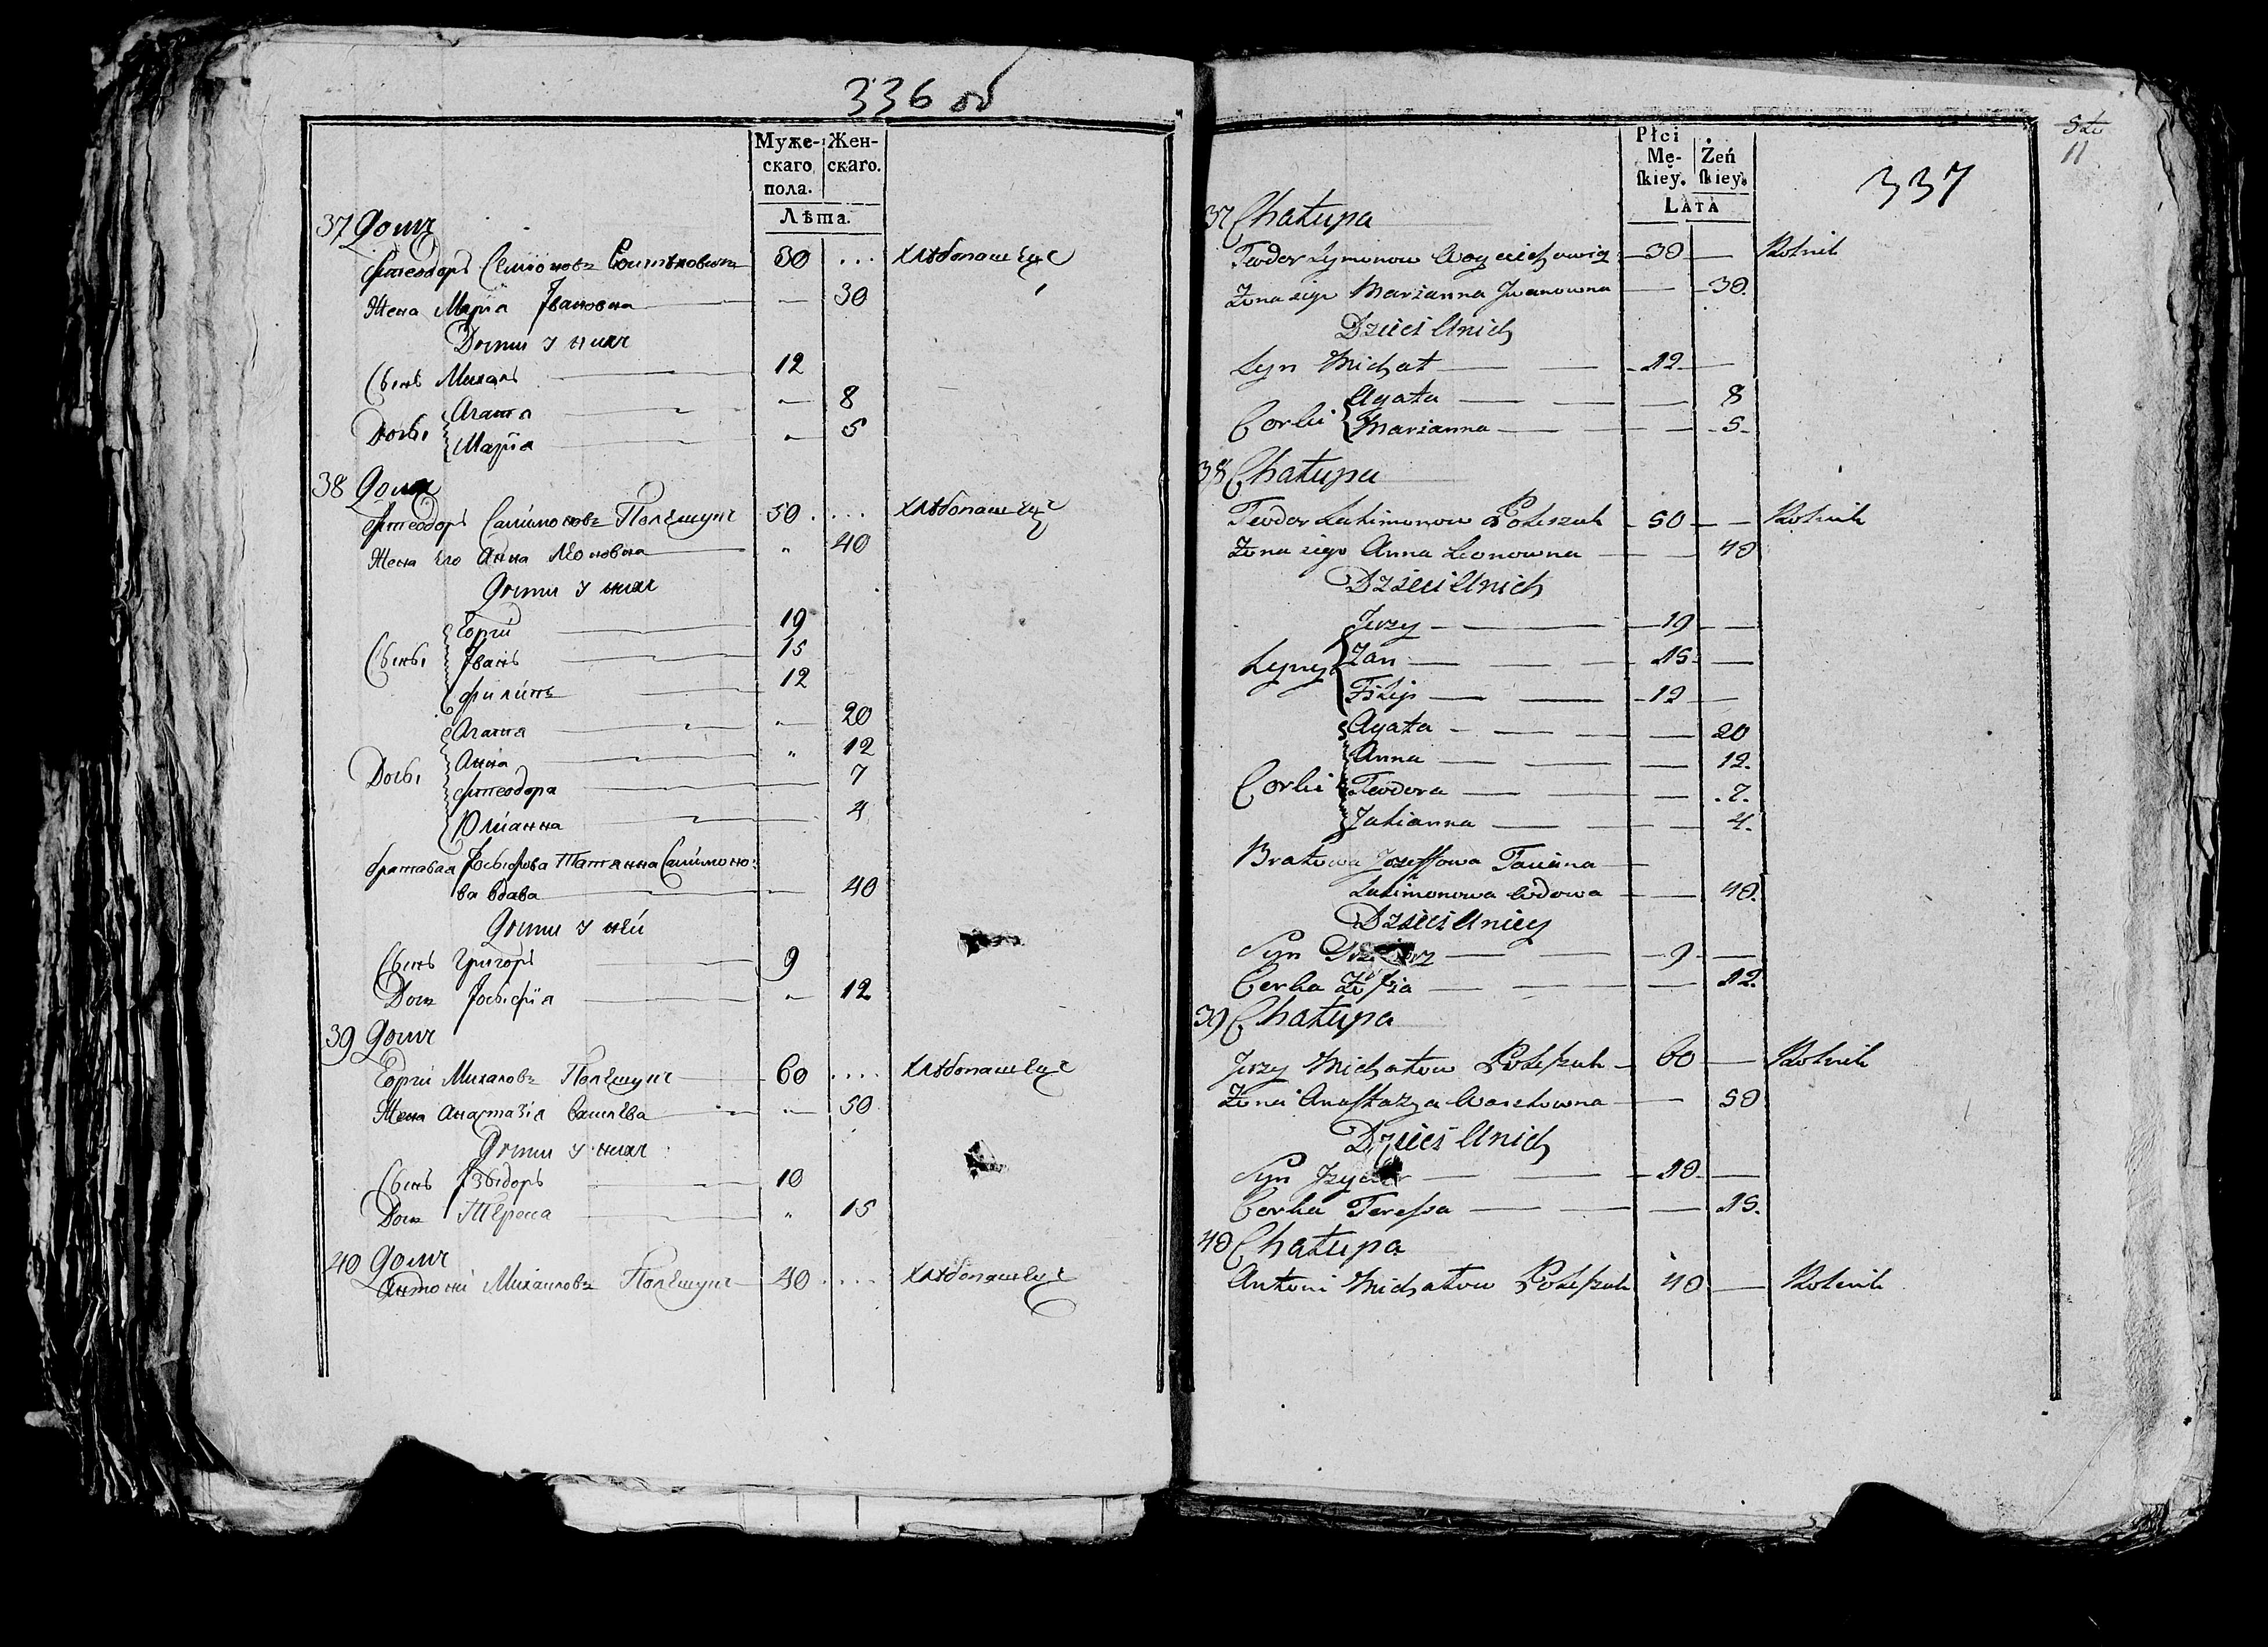 336 об
Муже-
скаго
пола.
Жен-
скаго.
Лѣта.
37 Домъ
Фтеодоръ Семіоновъ 30 .... хлѣбопашецъ
Жена Марія Івановна — 30
Дѣти у нихъ
Сынъ Михаль 12
Агата — 8
Дочьі
Марія — 5
38 Домъ
Фтеодоръ Салимоновъ Полешукъ 50 .... хлѣбопашецъ
Жена его Анна Леоновна " 40
Дѣти у нихъ
Еоргій 19
Сыньі Іванъ 15
Филипъ 12
Агата — 20
Анна " 12
Дочьі
Фтеодора 7
Юліанна 4
братовая Іосыфова Татянна Салимоно-
ва вдава — 40
Дѣти у ней
Сынъ Григоръ 9
Дочь — 12
39 Домъ
Еоргій Михаловъ Полешукъ 60 .... хлѣбопашецъ
Жена Анастазія — 50
Дѣти у нихъ
Сынъ Ізыдоръ 10
Дочь Тереса " 15
40 Домъ
Антоній Михаиловъ Полешукъ 40 .... хлѣбопашецъ
Płci
Mę-
ſkiey.
Żeń
ſkiey.
LATA
337
11
37 Chałupa
Teodor Symonow Woyciechowicz — 30 — Rolnik
Żona iego Marianna Jwanowna — 30.
Dzieci Unich
Syn Michał — 12 —
Agata — 8
Corki
Marianna — 5
38 Chałupa
Teodor Salimonow Poleszuk — 50 — Rolnik
Żona iego Anna Leonowna — 40
Dzieci Unich
Jerzy — 19 —
Syny Jan — 15 —
Filip — 12 —
Agata — 20
Anna — 12.
Corki Teodora — 7.
Julianna — 4.
Bratowa Jozeffowa Taciana —
Salimonowa Wdowa — 40.
Dzieci Uniey
Syn — 9 —
Corka Zofia — 12.
39 Chałupa
Jerzy Michałow Poleſzuk — 60 — Rolnik
Żona Anaſtazya — 50
Dzieci Unich
Syn — 10 —
Corka Tereſsa — 15.
40 Chałupa
Antoni Michałow Poleſzuk 40 — Rolnik